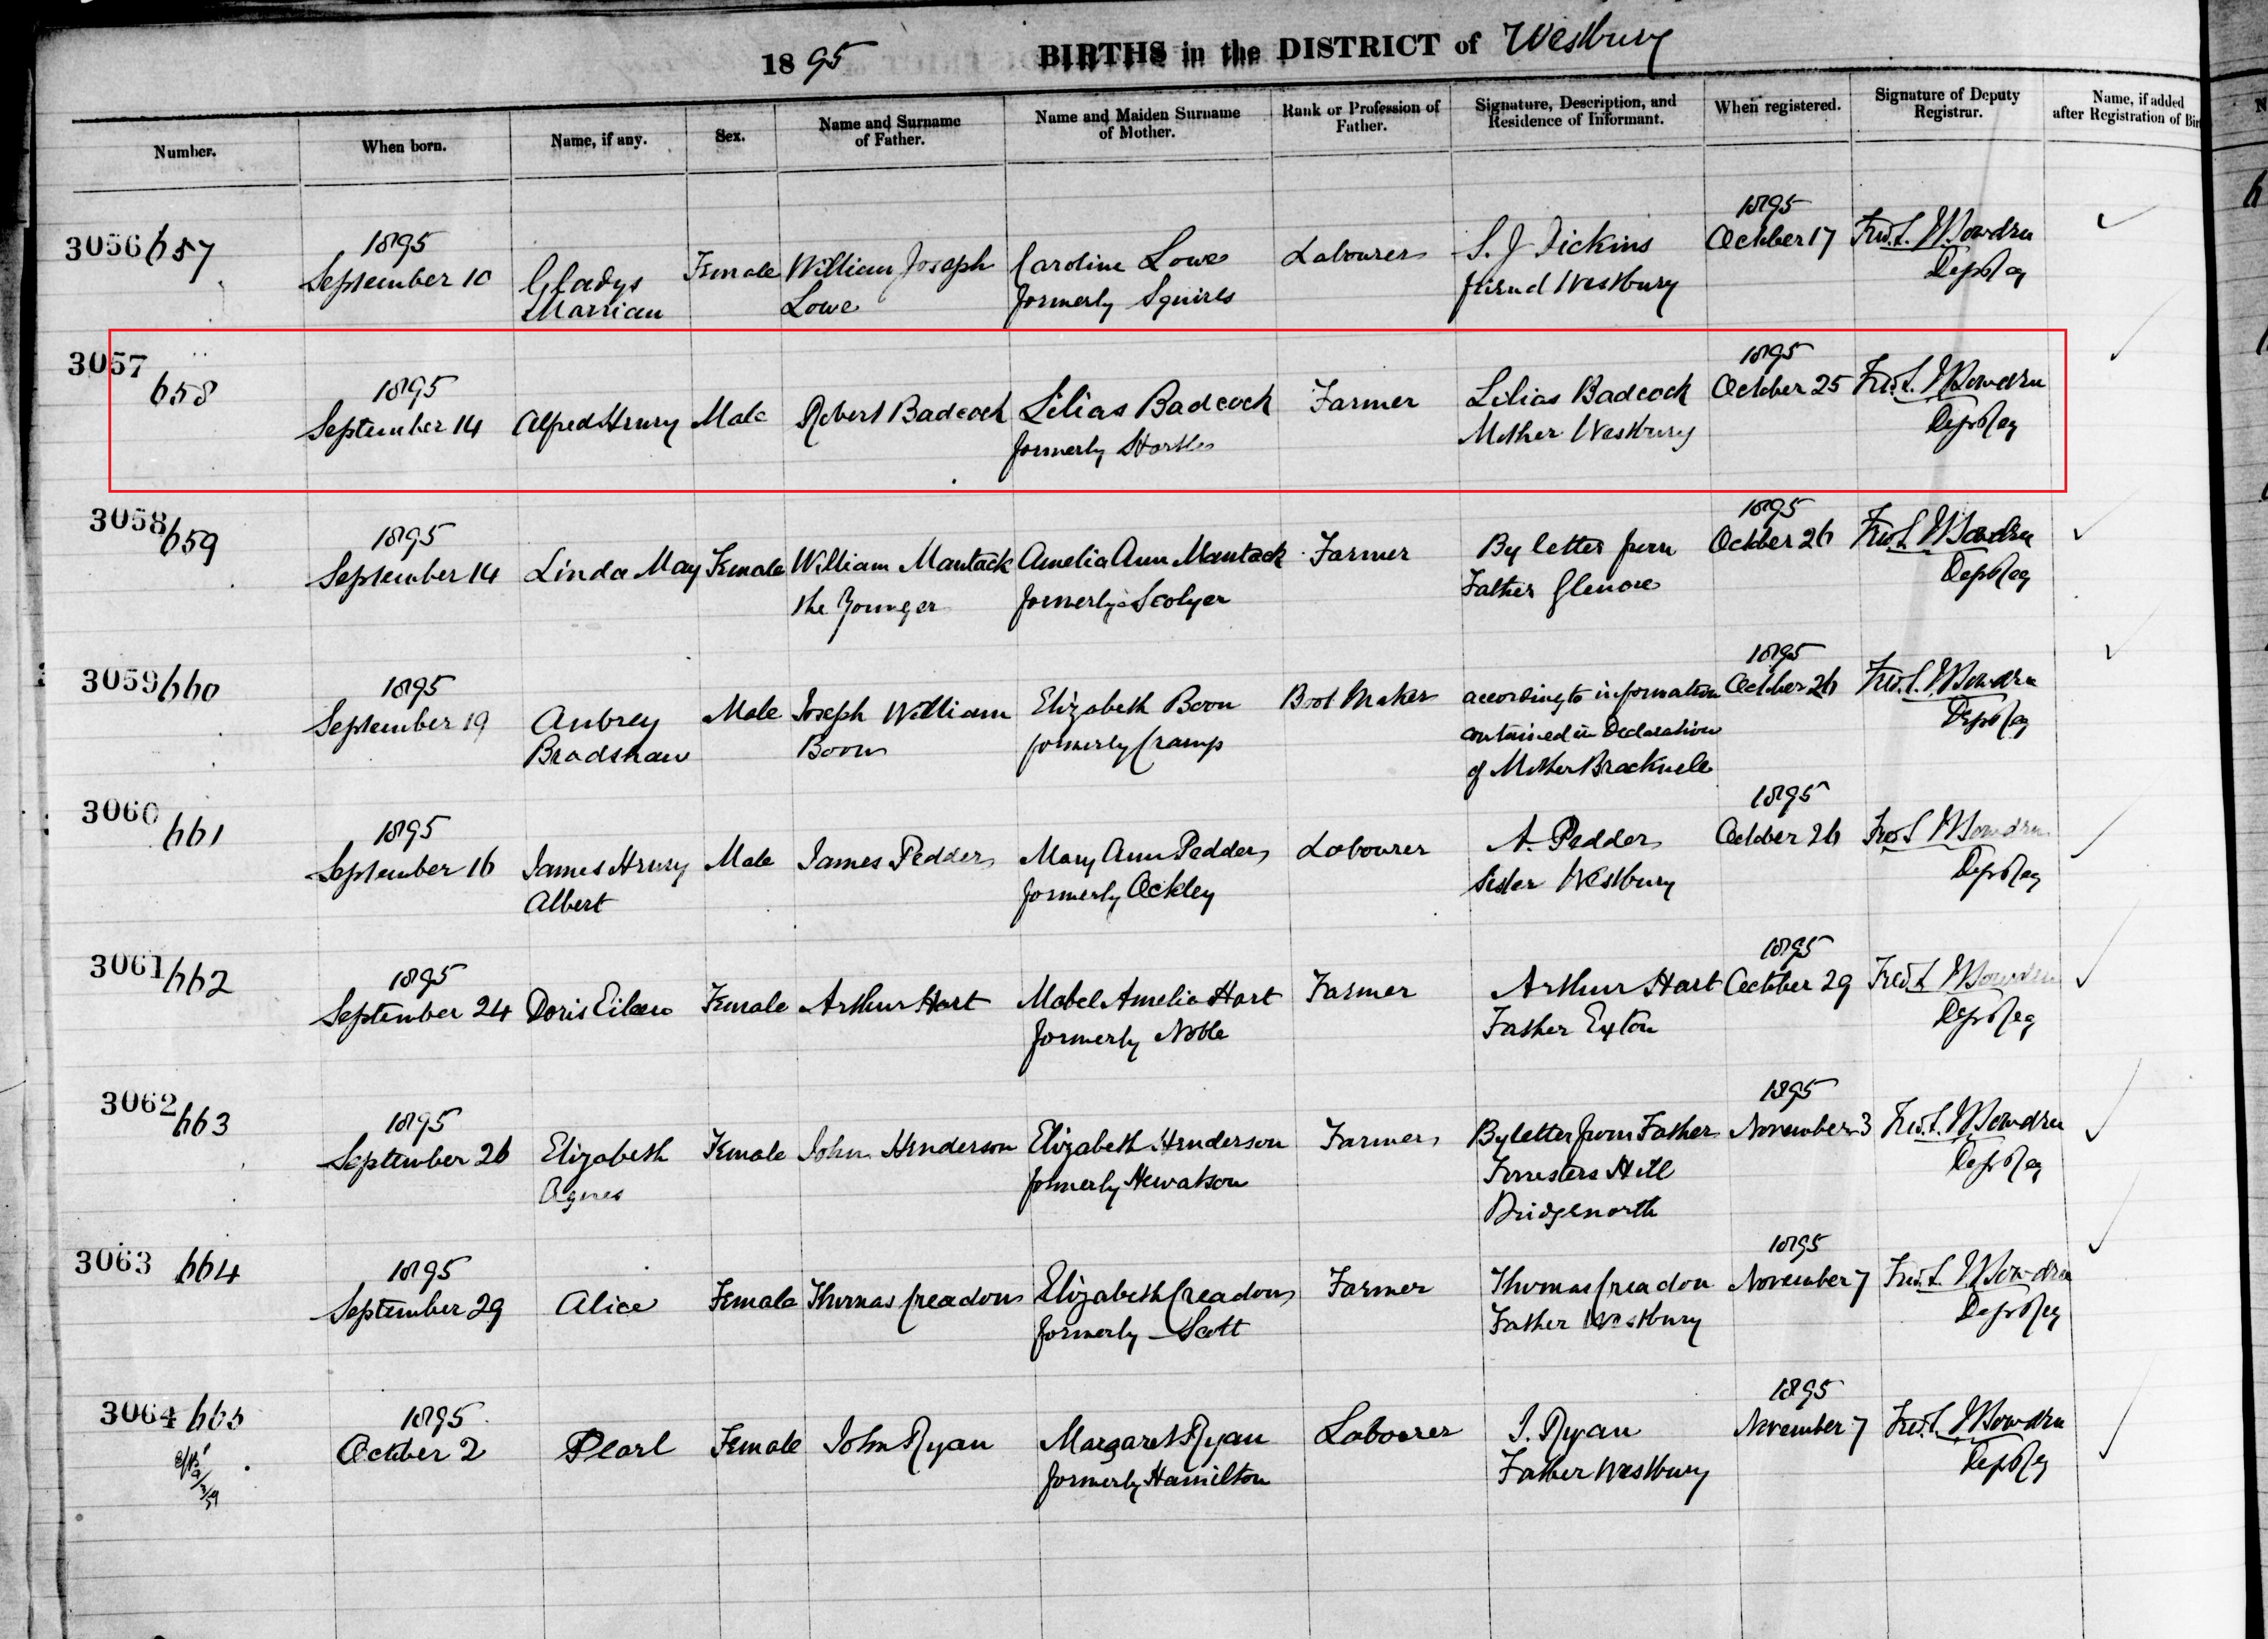 1895 BIRTHS in the DISTRICT of Westbury
Number. When born. Name, if any. Sex. Name and Surname of Father. Name and Maiden Surname of Mother. Rank or Profession of Father. Signature, Description, and Residence of Informant. When registered. Signature of Deputy Registrar. Name, if added after Registration of
3056 657 1895 September 10 Gladys Marrian Female William Joseph Lowe Caroline Lowe formerly Squires Labourer S. J. Dickins friend Westbury 1895 October 17 Fred. L. Dep Reg
3057 658 1895 September 14 Alfred Henry Male Robert Badcock Lilias Badcock formerly Farmer Lilias Badcock Mother Westbury 1895 October 25 Fred. L. Dep Reg
3058 659 1895 September 14 Linda May Female William Mantack the Younger Amelia Ann Mantack formerly Scolyer Farmer By letter from Father Glenore 1895 October 26 Fred. L. Dep Reg
3059 660 1895 September 19 Aubrey Bradshaw Male Joseph William Boon Elizabeth Boon formerly Cramp Boot Maker according to information contained in Declaration of Mother Bracknell 1895 October 26 Fred. L. Dep Reg
3060 661 1895 September 16 James Henry Albert Male James Pedder Mary Ann Pedder formerly Ockley Labourer A. Pedder Sister Westbury 1895 October 26 Fred L Dep Reg
3061 662 1895 September 24 Doris Eileen Female Arthur Hart Mabel Amelia Hart formerly Noble Farmer Arthur Hart Father Exton 1895 October 29 Fred. L Dep Reg
3062 663 1895 September 26 Elizabeth Agnes Female John Henderson Elizabeth Henderson formerly Hewatson Farmer By letter from Father Forresters Hill Bridgenorth 1895 November 3 Fred. L. Dep Reg
3063 664 1895 September 29 Alice Female Thomas Creadon Elizabeth Creadon formerly Scott Farmer Thomas Creadon Father Westbury 1895 November 7 Fred. L. Dep Reg
3064 665 1895 October 2 Pearl Female John Ryan Margaret Ryan formerly Hamilton Labourer J. Ryan Father Westbury 1895 November 7 Fred. L. Dep Reg